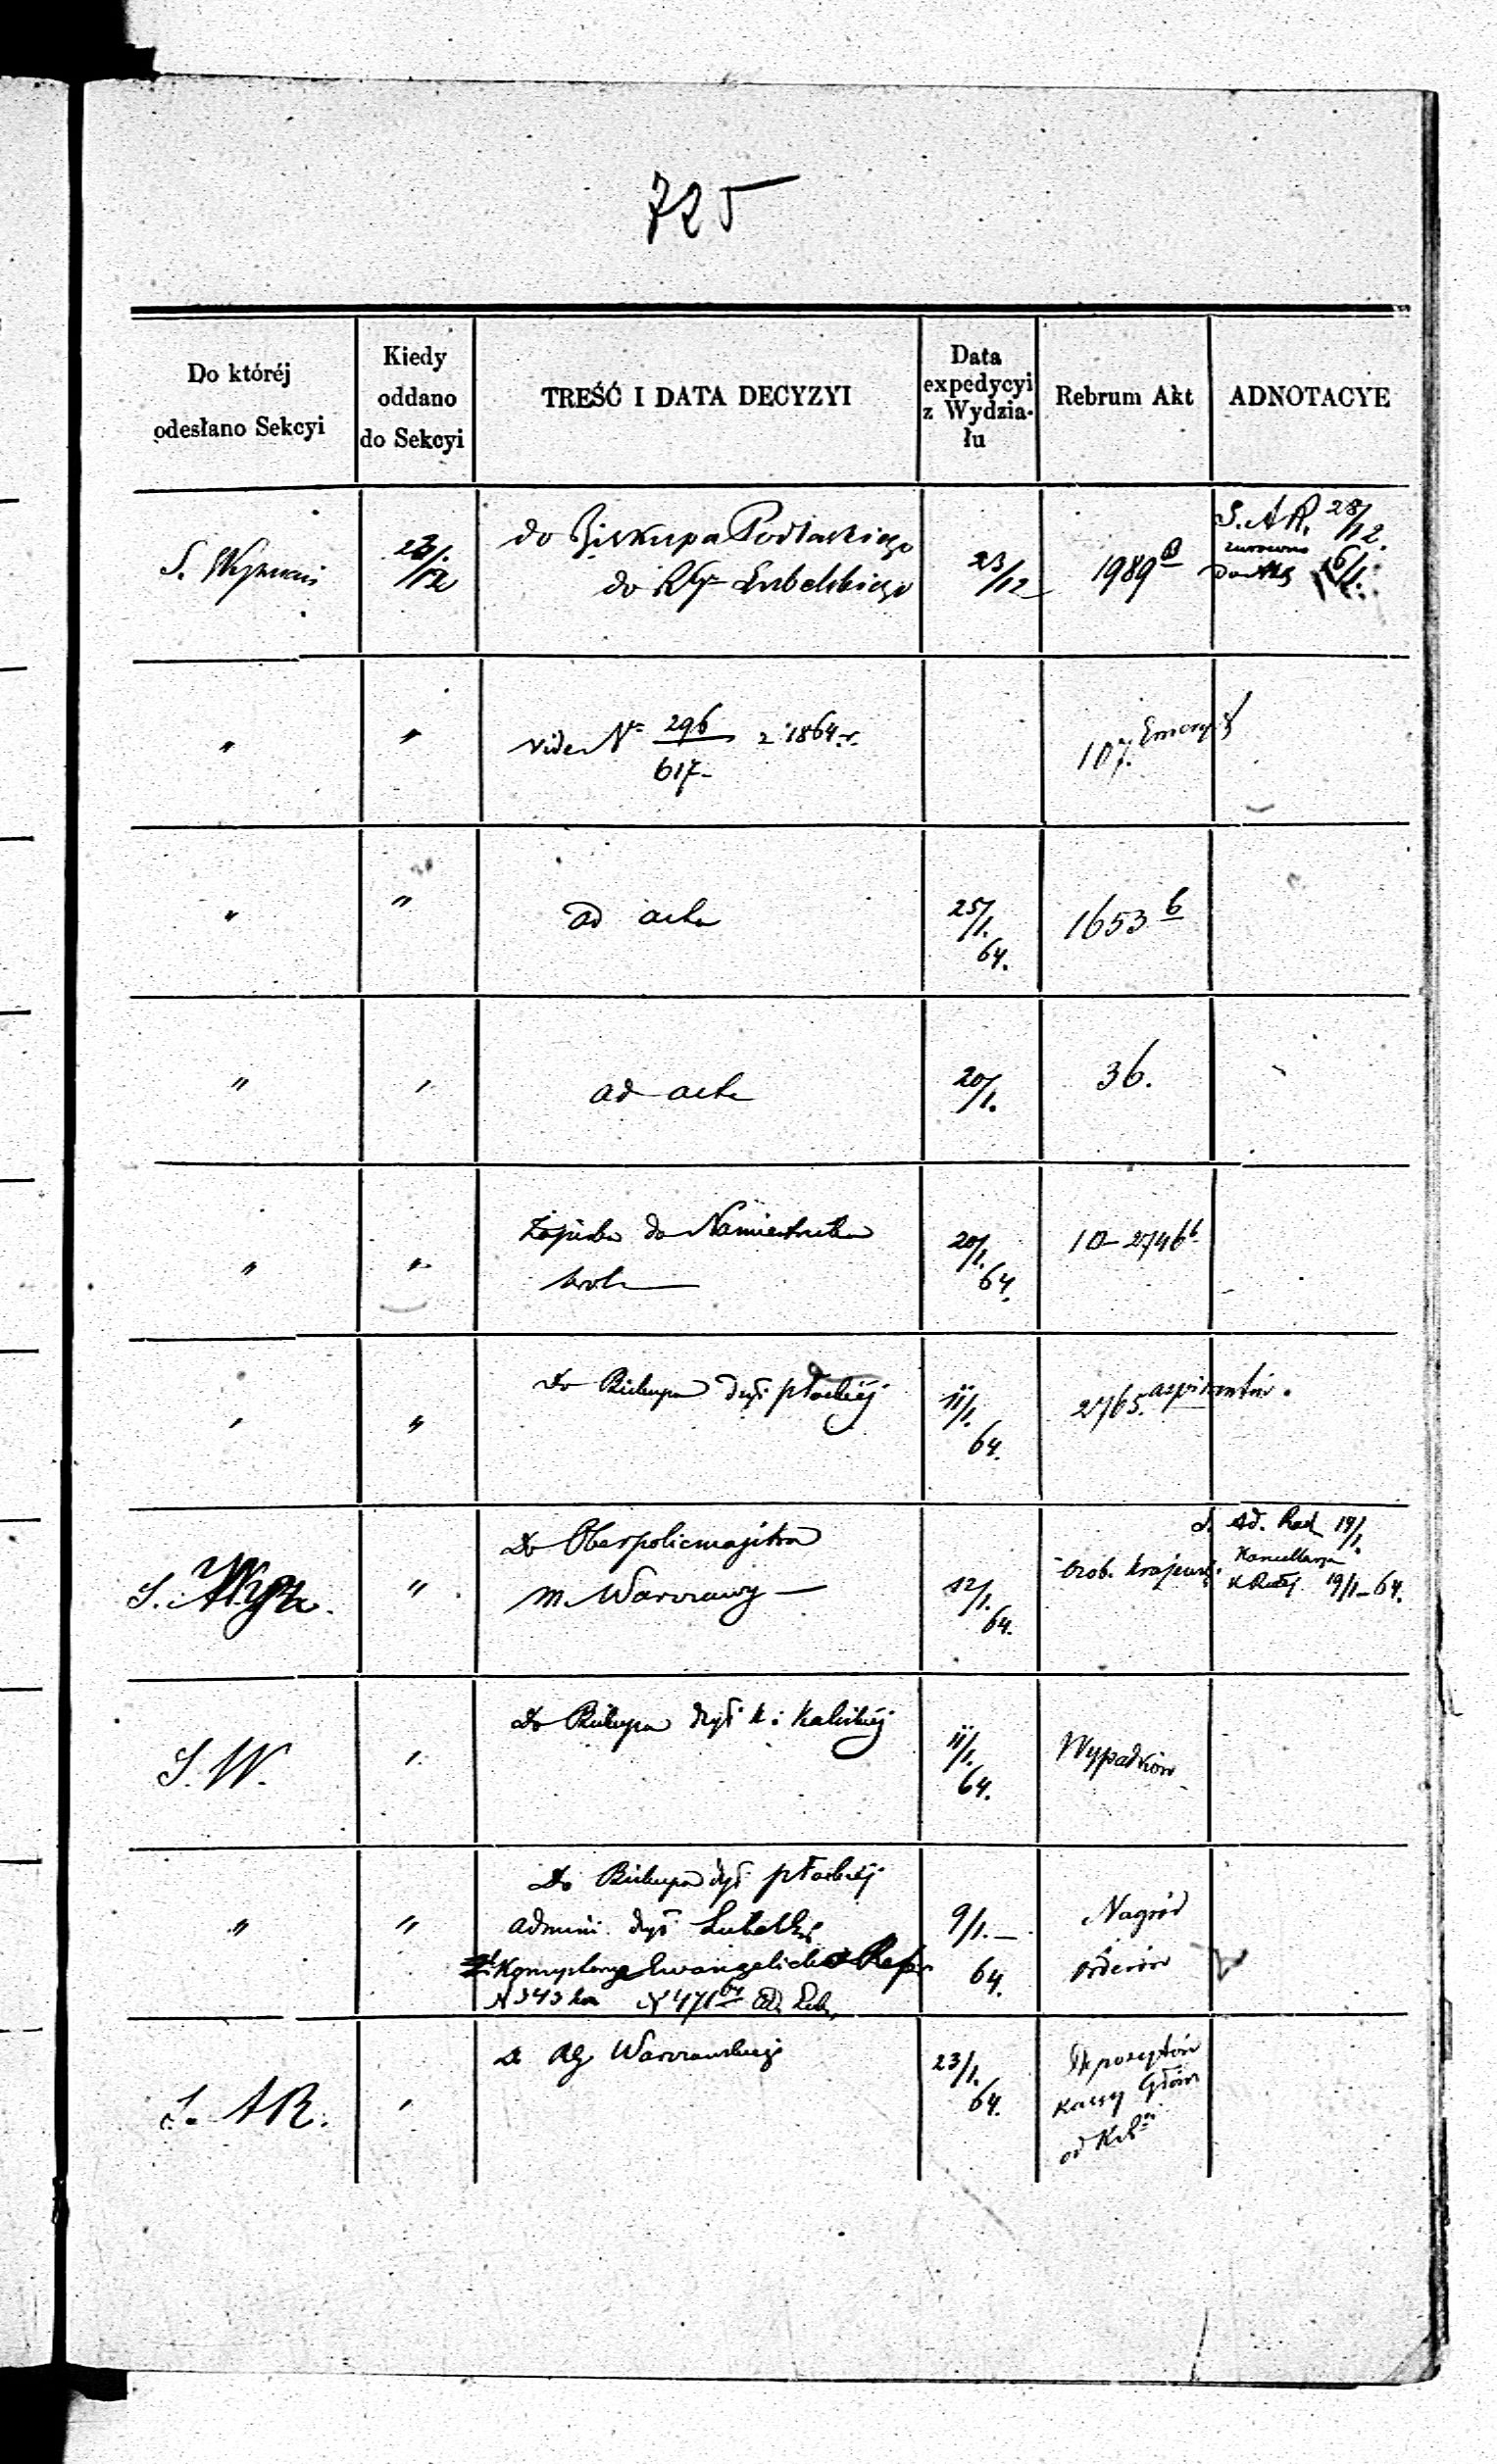 725
Do któréj
odesłano Sekcyi
Kiedy
oddano
do Sekcyi
TREŚĆ I DATA DECYZYI
Data
expedycyi
z Wydzia-
łu
Rebrum Akt
ADNOTACYE
S. Wyznań
do Biskupa Podlaskiego
do Rłgo Lubelskiego
23/12
1989
S. A R. 28/12.
"
"
vide N. 296/617 z 1864 r.
107. Emeryt
"
"
ad acta
25/1. 64.
1653 b
"
"
ad acta
20/1.
36.
"
"
Zapiska do Namiestnika
20/1. 64.
10-2746 b
"
"
Do Biskupa dyi płockiéj
11/1. 64.
2765. aspirantów.
S. Wyzn.
"
Do Oberpolicmajstra
m. Warszawy —
12/1. 64.
S. Ad. Rach 14/1.
Kancellarya
19/1-64.
S. W.
"
Do Biskupa dyi k: Kaliskiéj
11/1. 64.
Wypadków
"
"
Do Biskupa dyi płockiéj
Admini. dyi Lubelskiéj
Ewangelicko Refor
9/1.— 64.
Nagród
Orderów
S. AR.
"
Do Rłg Warszawskiego
23/1. 64.
Depozytów
Kassy Głów
od